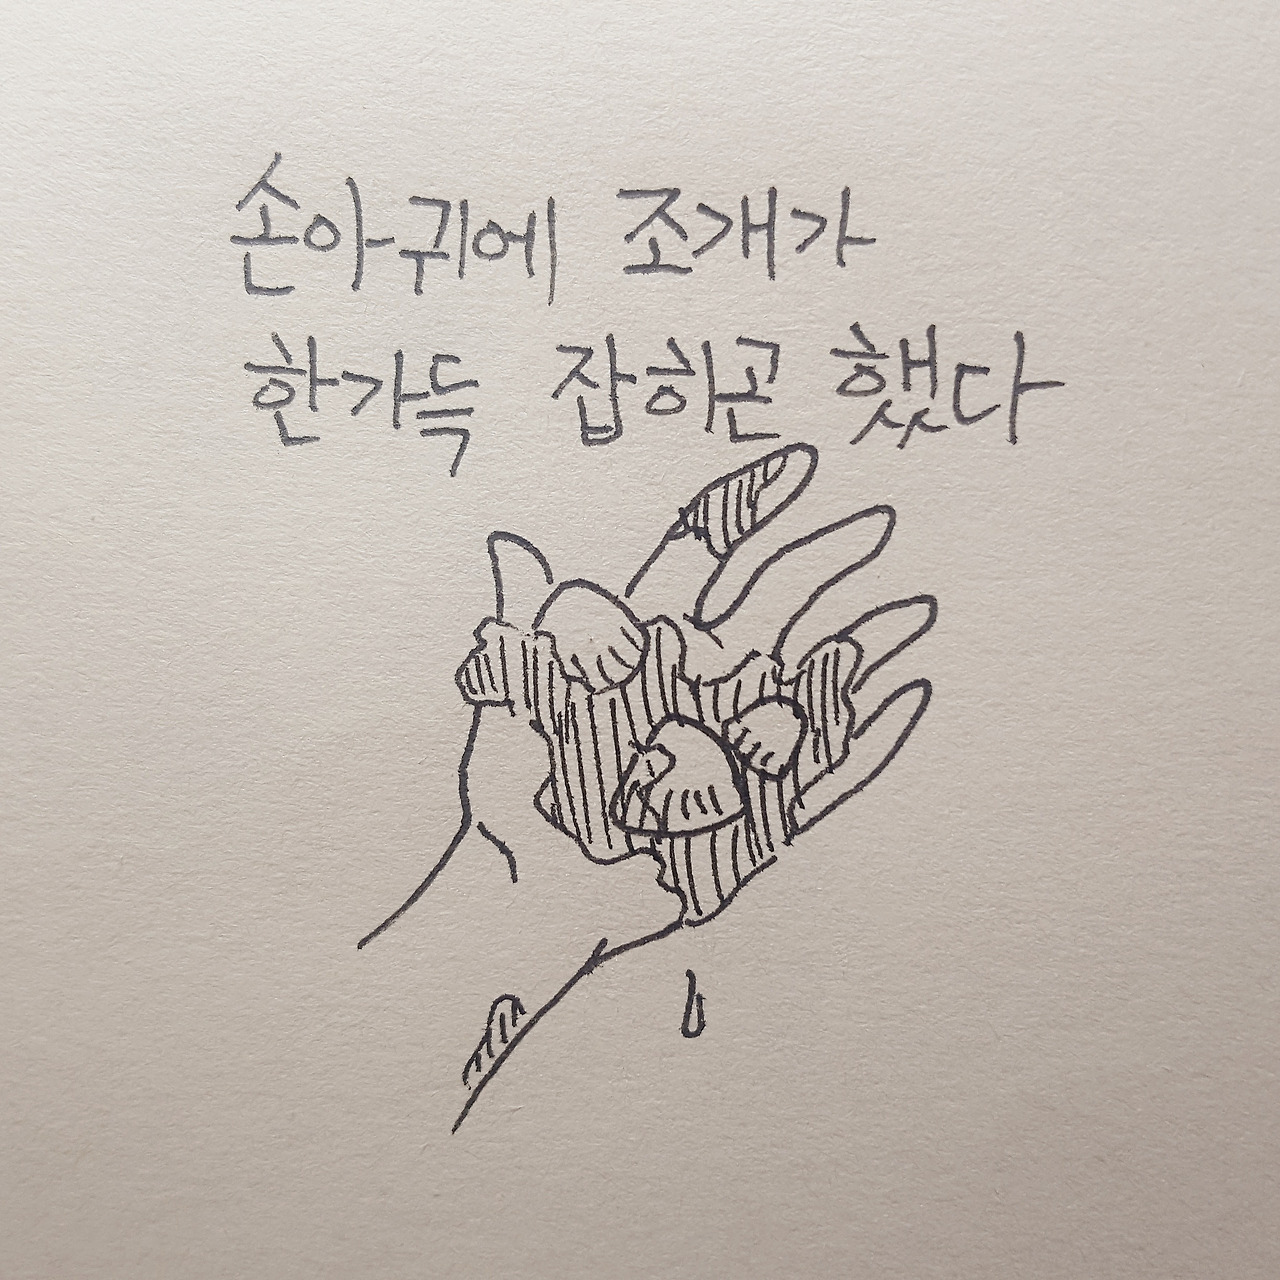 손아귀에 조개가
한가득 잡히곤 했다